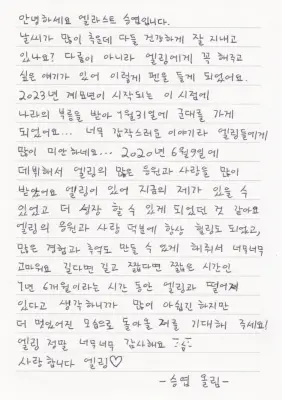 안녕하세요 엘라스트 승엽입니다.
날씨가 많이 추운데 다들 건강하게 잘 지내고
있나요? 다름이 아니라 엘링에게 꼭 해주고
싶은 얘기가 있어 이렇게 펜을 들게 되었어요.
2023년 계묘년이 시작되는 이 시점에
나라의 부름을 받아 1월31일에 군대를 가게
되었어요... 너무 갑작스러운 이야기라 엘링들에게
많이 미안하네요... 2020년 6월9일에
데뷔해서 엘링의 많은 응원과 사랑을 많이
받았어요 엘링이 있어 지금의 제가 있을 수
있었고 더 성장 할 수 있게 되었던 것 같아요
엘링의 응원과 사랑 덕분에 항상 힘도 되었고,
많은 경험과 추억도 만들 수 있게 해줘서 너무너무
고마워요 길다면 길고 짧다면 짧은 시간인
1년 6개월이라는 시간 동안 엘링과 떨어져
있다고 생각하니까 많이 아쉽긴 하지만
더 멋있어진 모습으로 돌아올 저를 기대해 주세요!
엘링 정말 너무너무 감사해요
사랑합니다 엘링♡
-승엽 올림-